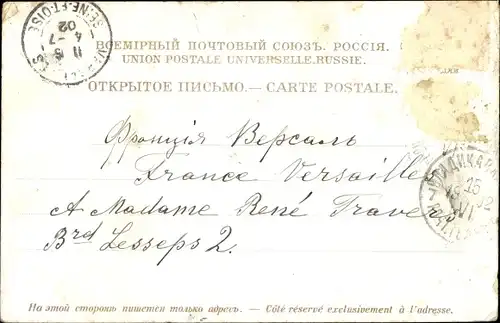 SEINE-ET-OISE
4-7
02
ВСЕМІРНЫЙ ПОЧТОВЫЙ СОЮЗЪ. РОССІЯ.
UNION POSTALE UNIVERSELLE.RUSSIE.
ОТКРЫТОЕ ПИСЬМО.— CARTE POSTALE.
Франція Версаль
France Versailles
A Madame René Travers
Brd Lesseps 2.
На этой сторонѣ пишется только адресъ. — Côté réservé exclusivement à l'adresse.